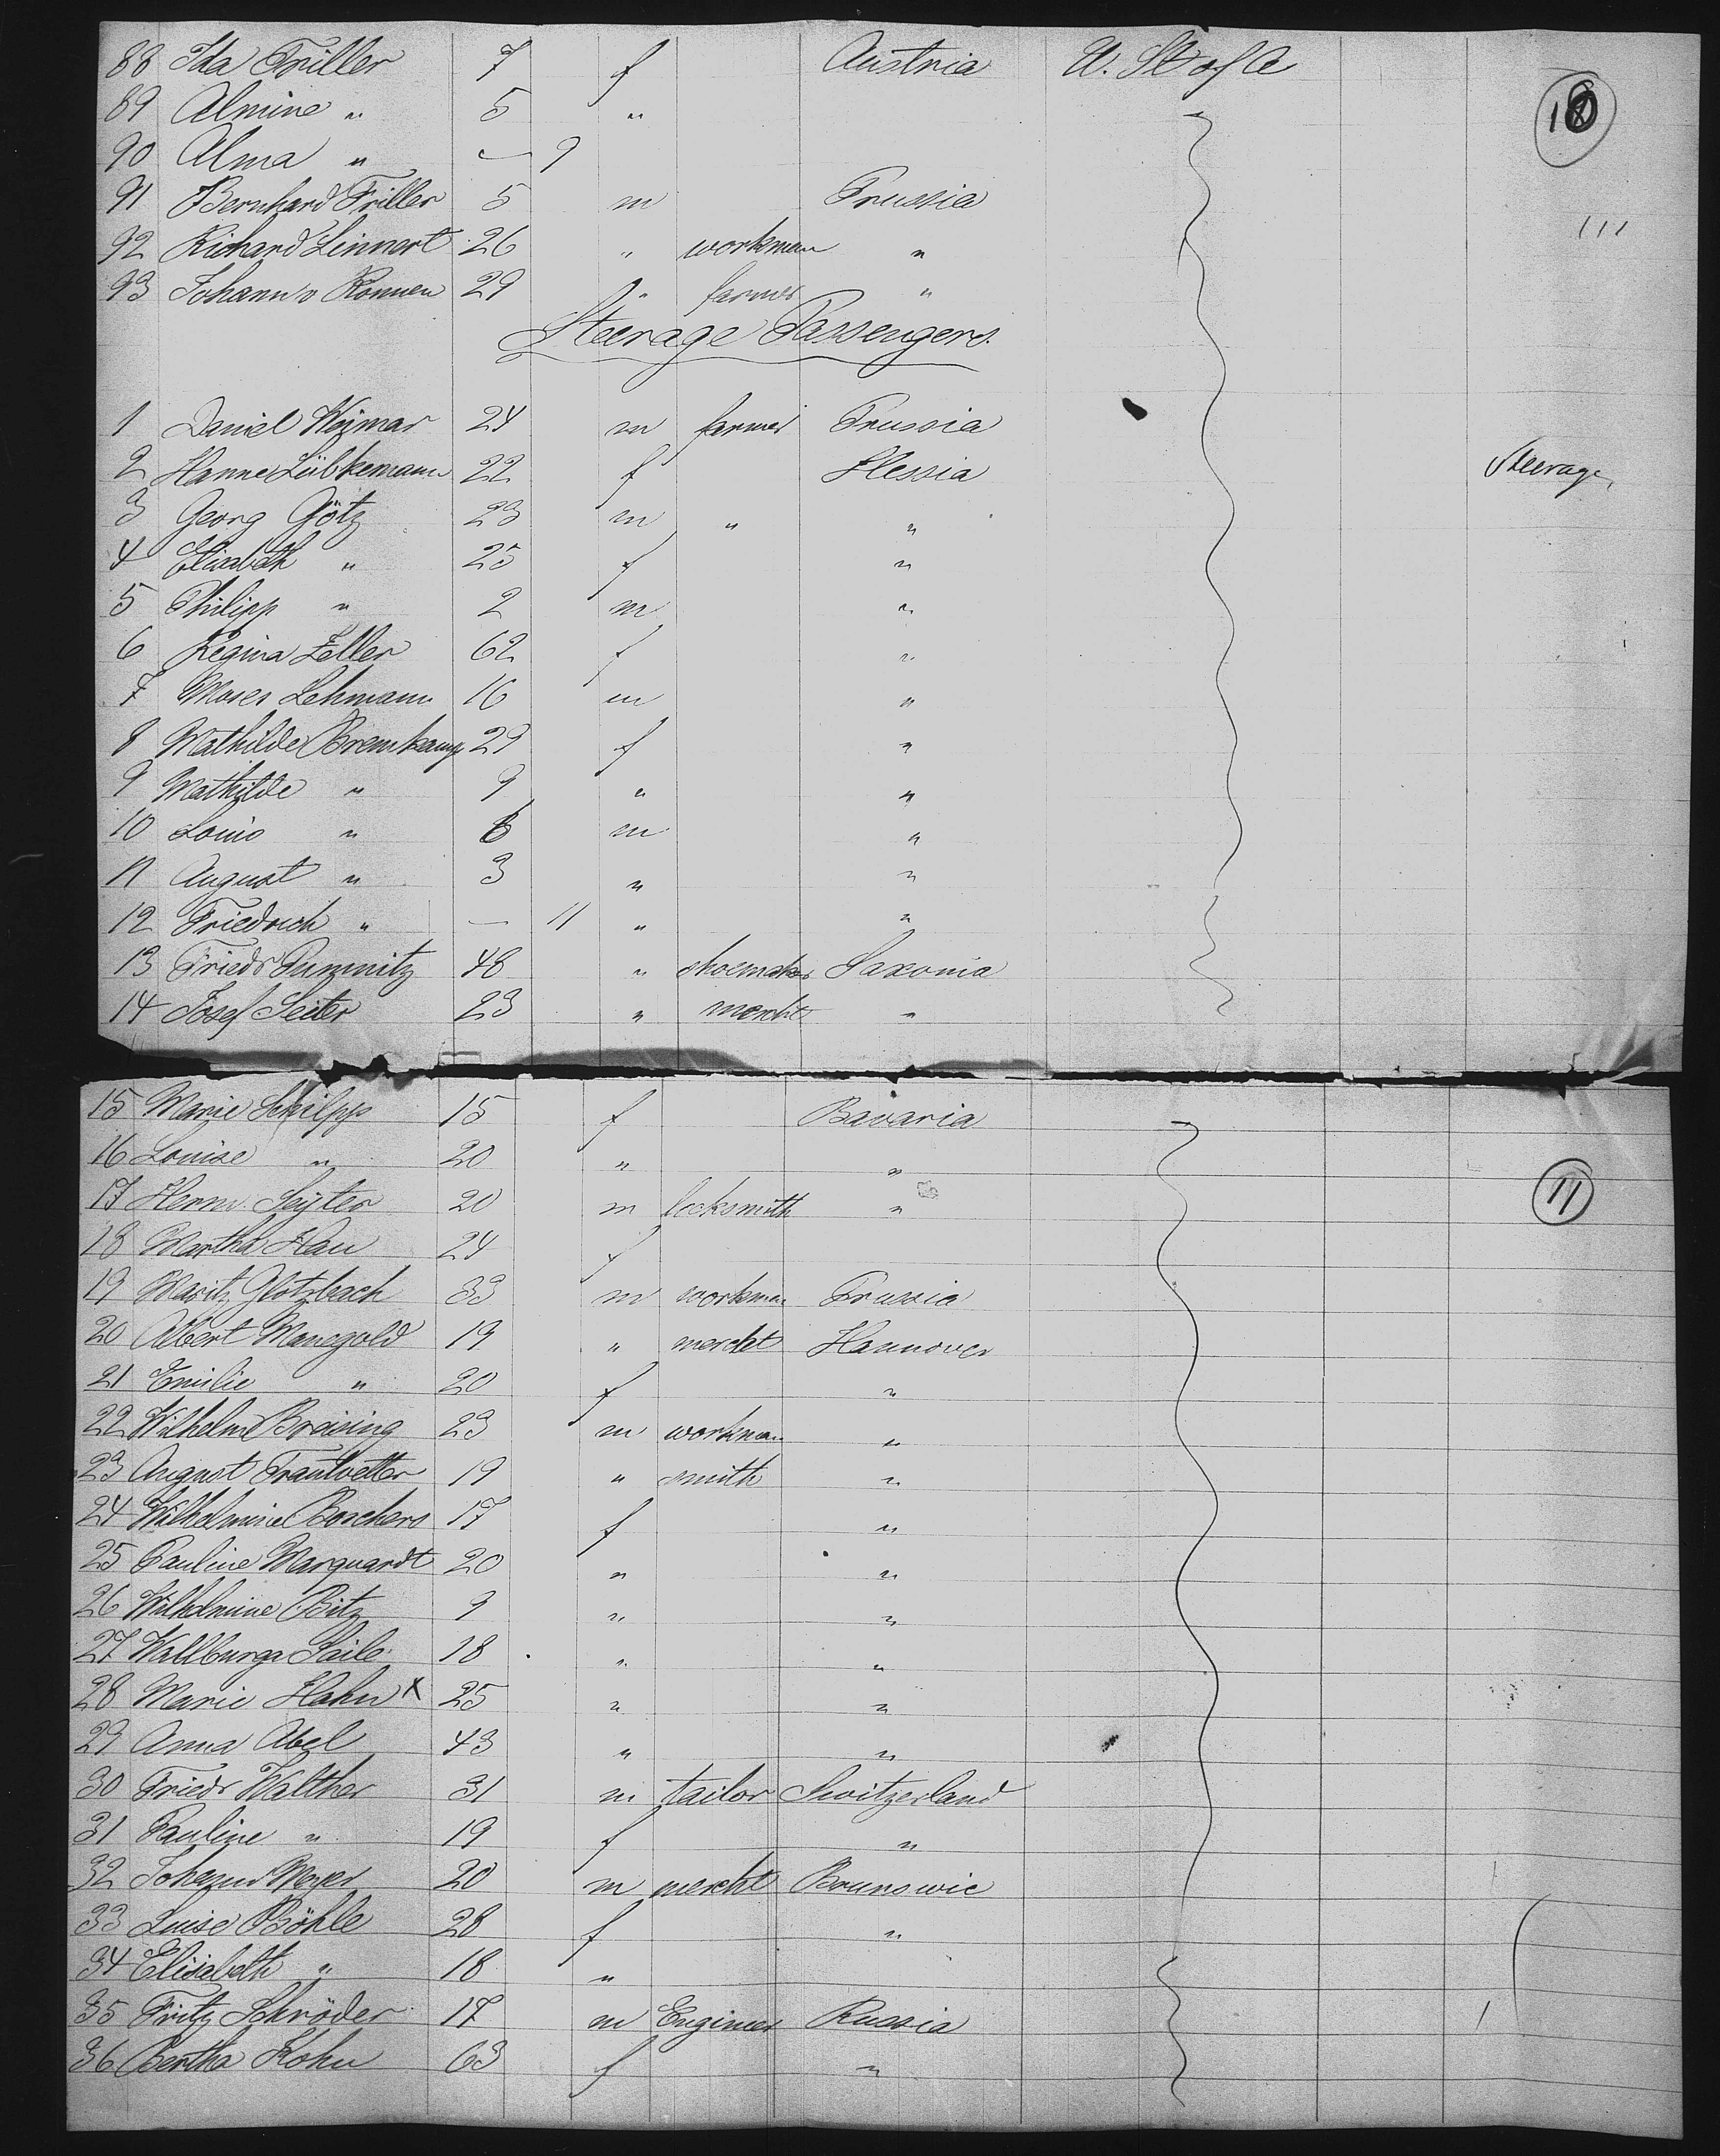 88 Ida Triller 7 f Austria U. St. of A
89 Almine " 5 "
90 Alma " — 9
91 Bernhard Triller 5 m Prussia
92 Richard Linnert 26 " workman "
93 Johann Ronnen 29 " farmer "
Steerage Passengers.
1 Daniel Weymar 24 m farmer Prussia
2 Hanne Lübkemann 22 f Hessia
3 Georg Götz 23 m " "
4 Elisabeth " 25 f "
5 Philipp " 2 m "
6 Regina Zeller 62 f "
7 Moses Lehmann 16 m "
8 Mathilde Bremkamp 29 f "
9 Mathilde " 9 " "
10 Louis " 6 m "
11 August " 3 " "
12 Friedrich " — 11 " "
13 Friedr 48 " shoemaker Saxonia
14 Josef Seiter 23 " mercht "
Steerage
111
15 Marie Schilpp 15 f Bavaria
16 Louise " 20 " "
17 Herm. Seyter 20 m locksmith "
18 Martha Hau 24 f
19 Moritz Glotzbach 33 m workman Prussia
20 Albert Manegold 19 " mercht Hannover
21 Emilie " 20 f "
22 Wilhelm Breising 23 m workman "
23 August Trautvetter 19 " smith "
24 Wilhelmine Borchers 17 f "
25 Pauline Marquardt 20 " "
26 Wilhelmine Bitz 9 " "
27 Wallburga Saile 18 " "
28 Marie Hahn x 25 " "
29 Anna Abel 43 " "
30 Friedr Walther 31 m tailor Switzerland
31 Pauline " 19 f "
32 Johann Meyer 20 m mercht Brunswic
33 Luise Böhle 28 f "
34 Elisabeth " 18 "
35 Fritz Schröder 17 m Engineer Russia
36 Bertha Kohn 63 f "
11